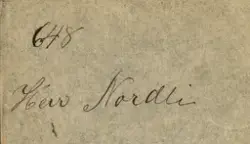 648
Herr Nordli